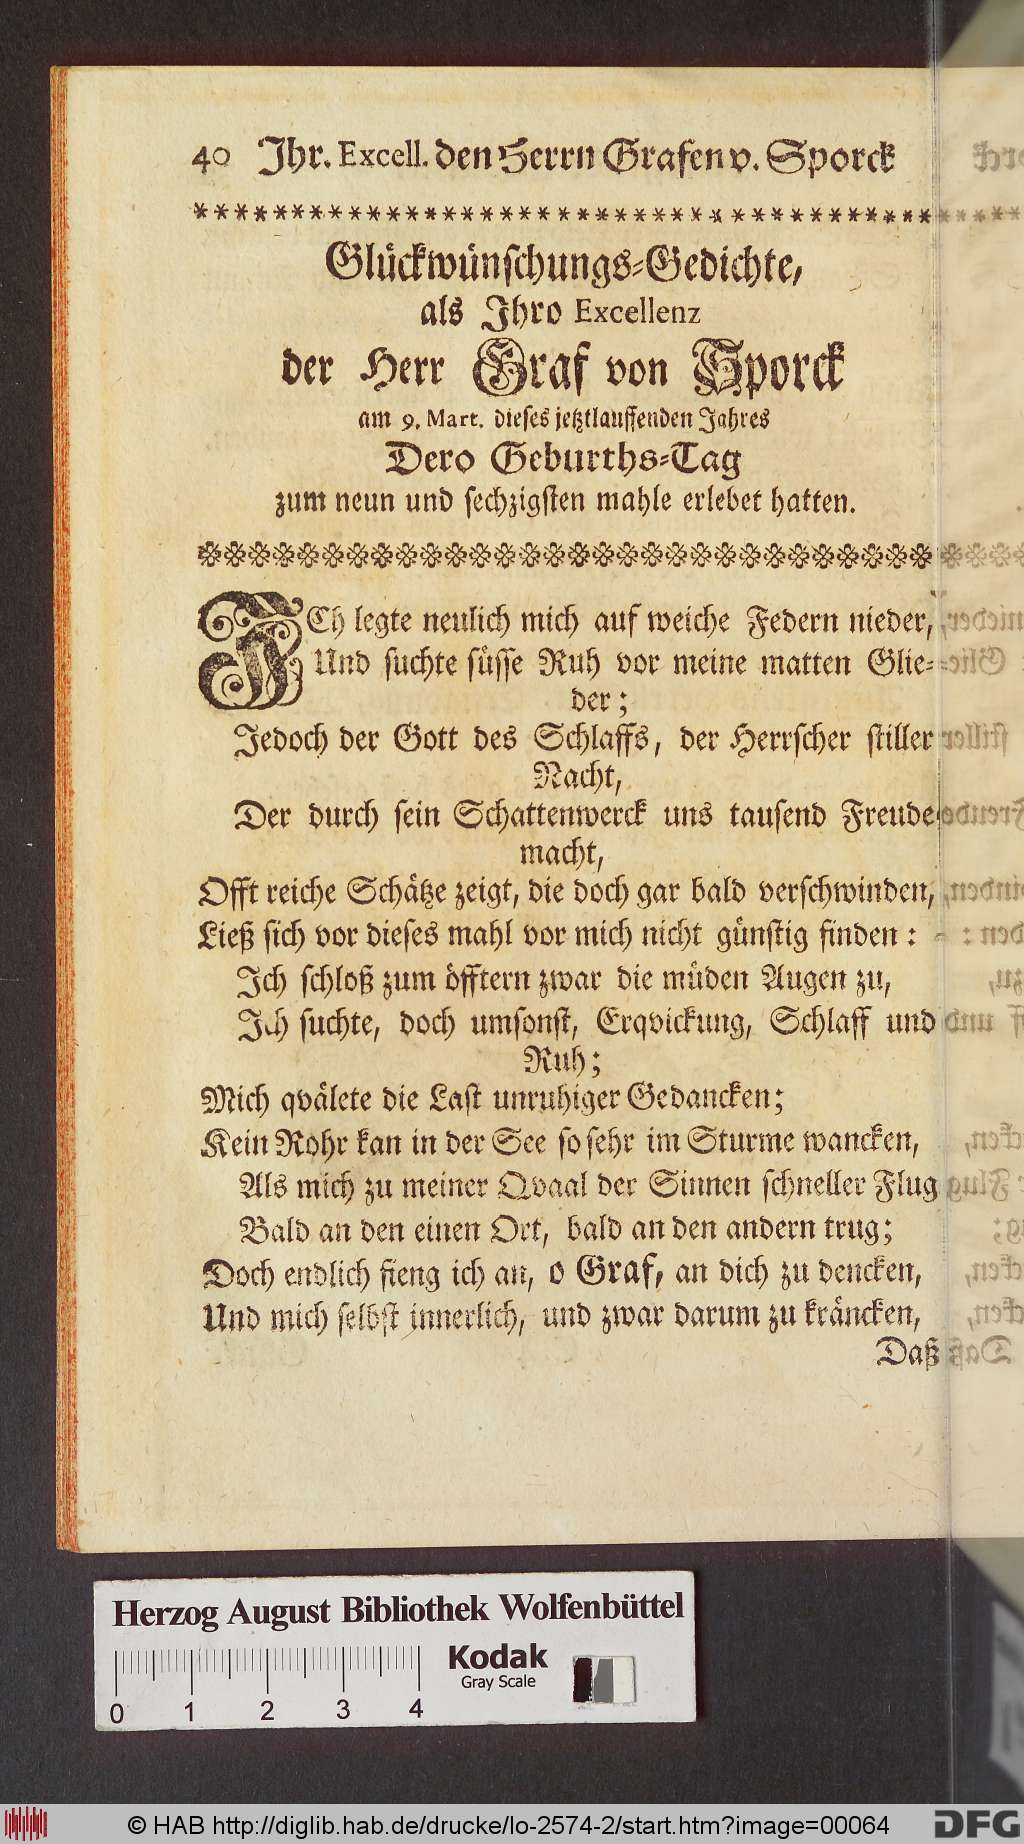 40 Ihr. Excell. den Herrn Grafen v. Sporck
Glückwünschungs-Gedichte,
als Ihro Excellenz
der Herr Graf von Sporck
am 9. Mart. dieses jetztlauffenden Jahres
Dero Geburths-Tag
zum neun und sechzigsten mahle erlebet hatten.
ICh legte neulich mich auf weiche Federn nieder,
Und suchte süsse Ruh vor meine matten Glie-
der;
Jedoch der Gott des Schlaffs, der Herrscher stiller
Nacht,
Der durch sein Schattenwerck uns tausend Freude
macht,
Offt reiche Schätze zeigt, die doch gar bald verschwinden,
Ließ sich vor dieses mahl vor mich nicht günstig finden:
Ich schloß zum öfftern zwar die müden Augen zu,
Ich suchte, doch umsonst, Erqvickung, Schlaff und
Ruh;
Mich qvälete die Last unruhiger Gedancken;
Kein Rohr kan in der See so sehr im Sturme wancken,
Als mich zu meiner Qvaal der Sinnen schneller Flug
Bald an den einen Ort, bald an den andern trug;
Doch endlich fieng ich an, o Graf, an dich zu dencken,
Und mich selbst innerlich, und zwar darum zu kräncken,
Daß
Herzog August Bibliothek Wolfenbüttel
Kodak
Gray Scale
0 1 2 3 4
© HAB http://diglib.hab.de/drucke/lo-2574-2/start.htm?image=00064
DFG